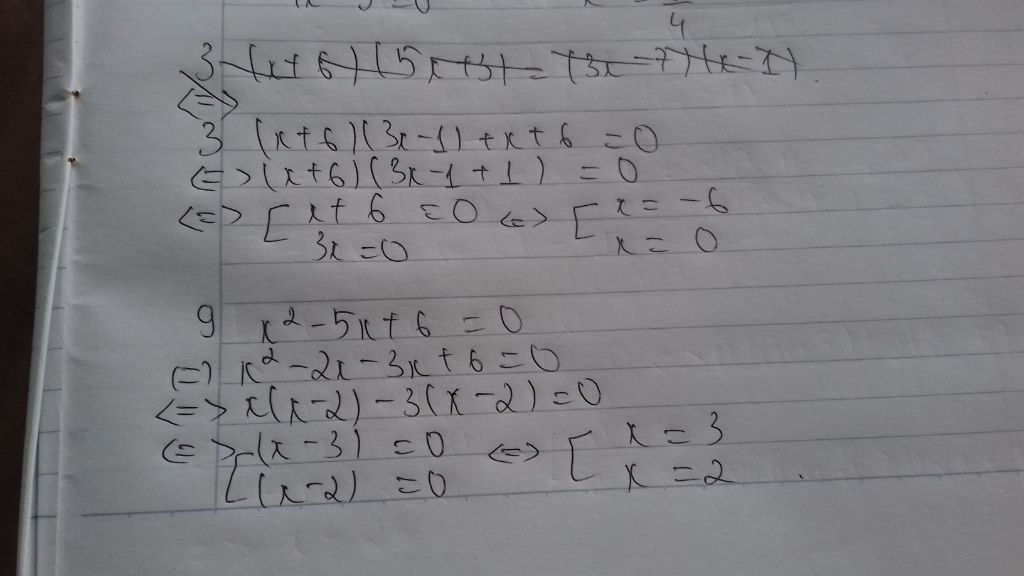 4
3 (x+6)(5x+3) = (3x-7)(x-1)
<=>
3 (x+6)(3x-1)+x+6 =0
<=>(x+6)(3x-1+1) =0
<=> [ x+6 =0 <=> [ x= -6
3x=0 x= 0
9 x²-5x+6 =0
(=) x²-2x-3x+6=0
<=> x(x-2)-3(x-2)=0
<=> [ (x-3) =0 <=> [ x=3
(x-2) =0 x=2.